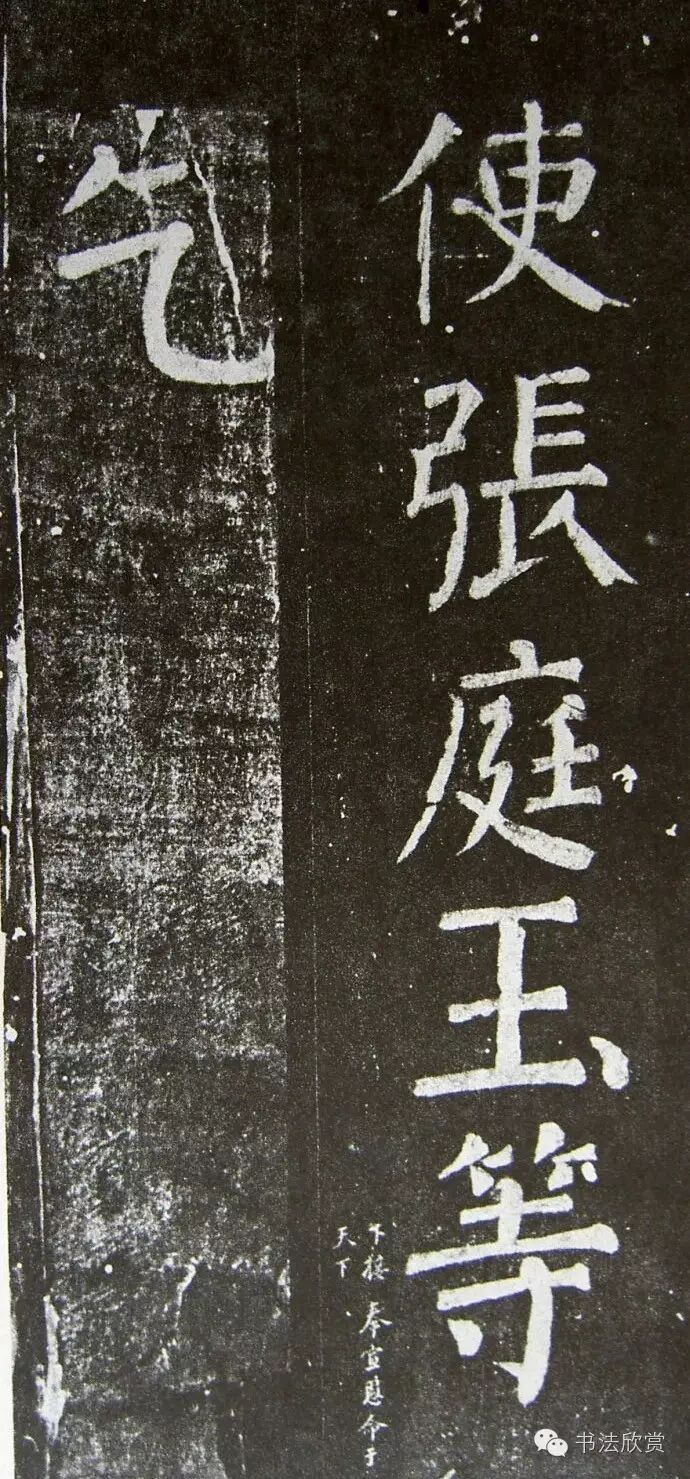 使張庭玉等
下接 奉宣恩命于
天下
乞
书法欣赏